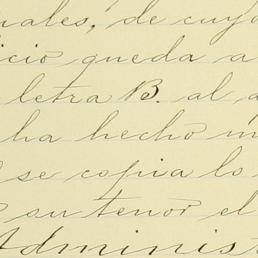 uales, de cuya
icio queda a
letra B. al a
ha hecho m
se copia lo
su tenor el
Administ